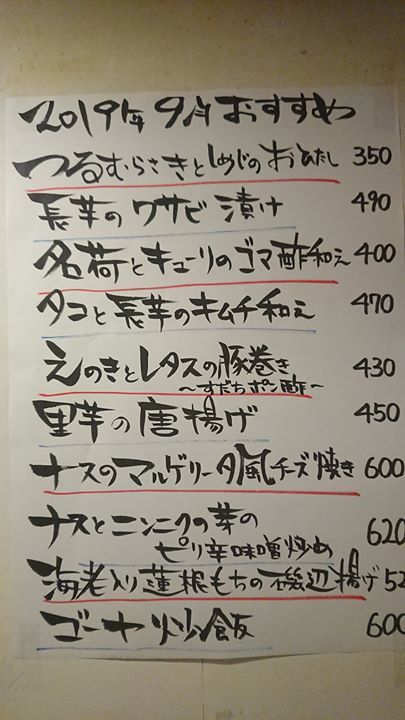 2019年9月おすすめ
つるむらさきとしめじのおひたし 350
長芋のワサビ漬け 490
名荷とキューリのゴマ酢和え 400
タコと長芋のキムチ和え 470
えのきとレタスの豚巻き 430
〜すだちポン酢〜
里芋の唐揚げ 450
ナスのマルゲリータ風チーズ焼き 600
ナスとニンニクの芽の
ピリ辛味噌炒め 620
海老入り蓮根もちの磯辺揚げ 52
ゴーヤ炒飯 600